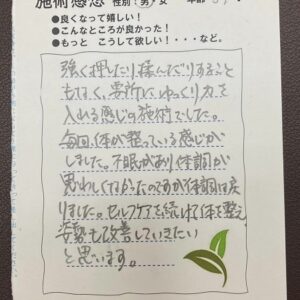 施術感想 性別：男・女 年齢
●良くなって嬉しい！
●こんなところが良かった！
●もっと こうして欲しい！・・・など。
強く押したり揉んだりすること
もなく、要所にゆっくり力を
入れる感じの施術でした。
毎回体が整っている感じが
しました。不眠があり体調が
思わしくなかったのですが体調は戻
りました。セルフケアを続けて体を整え
姿勢も改善していきたい
と思います。